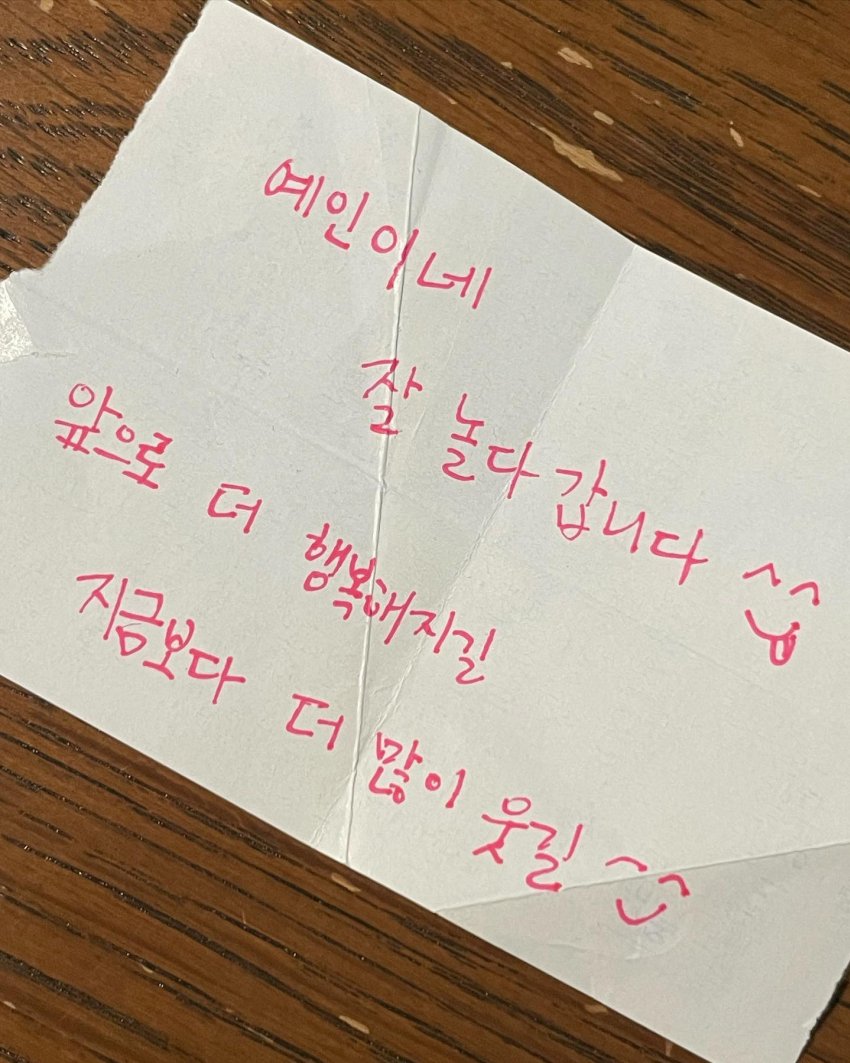 예인이네
잘 놀다 갑니다
앞으로 더 행복해지길
지금보다 더 많이 웃길